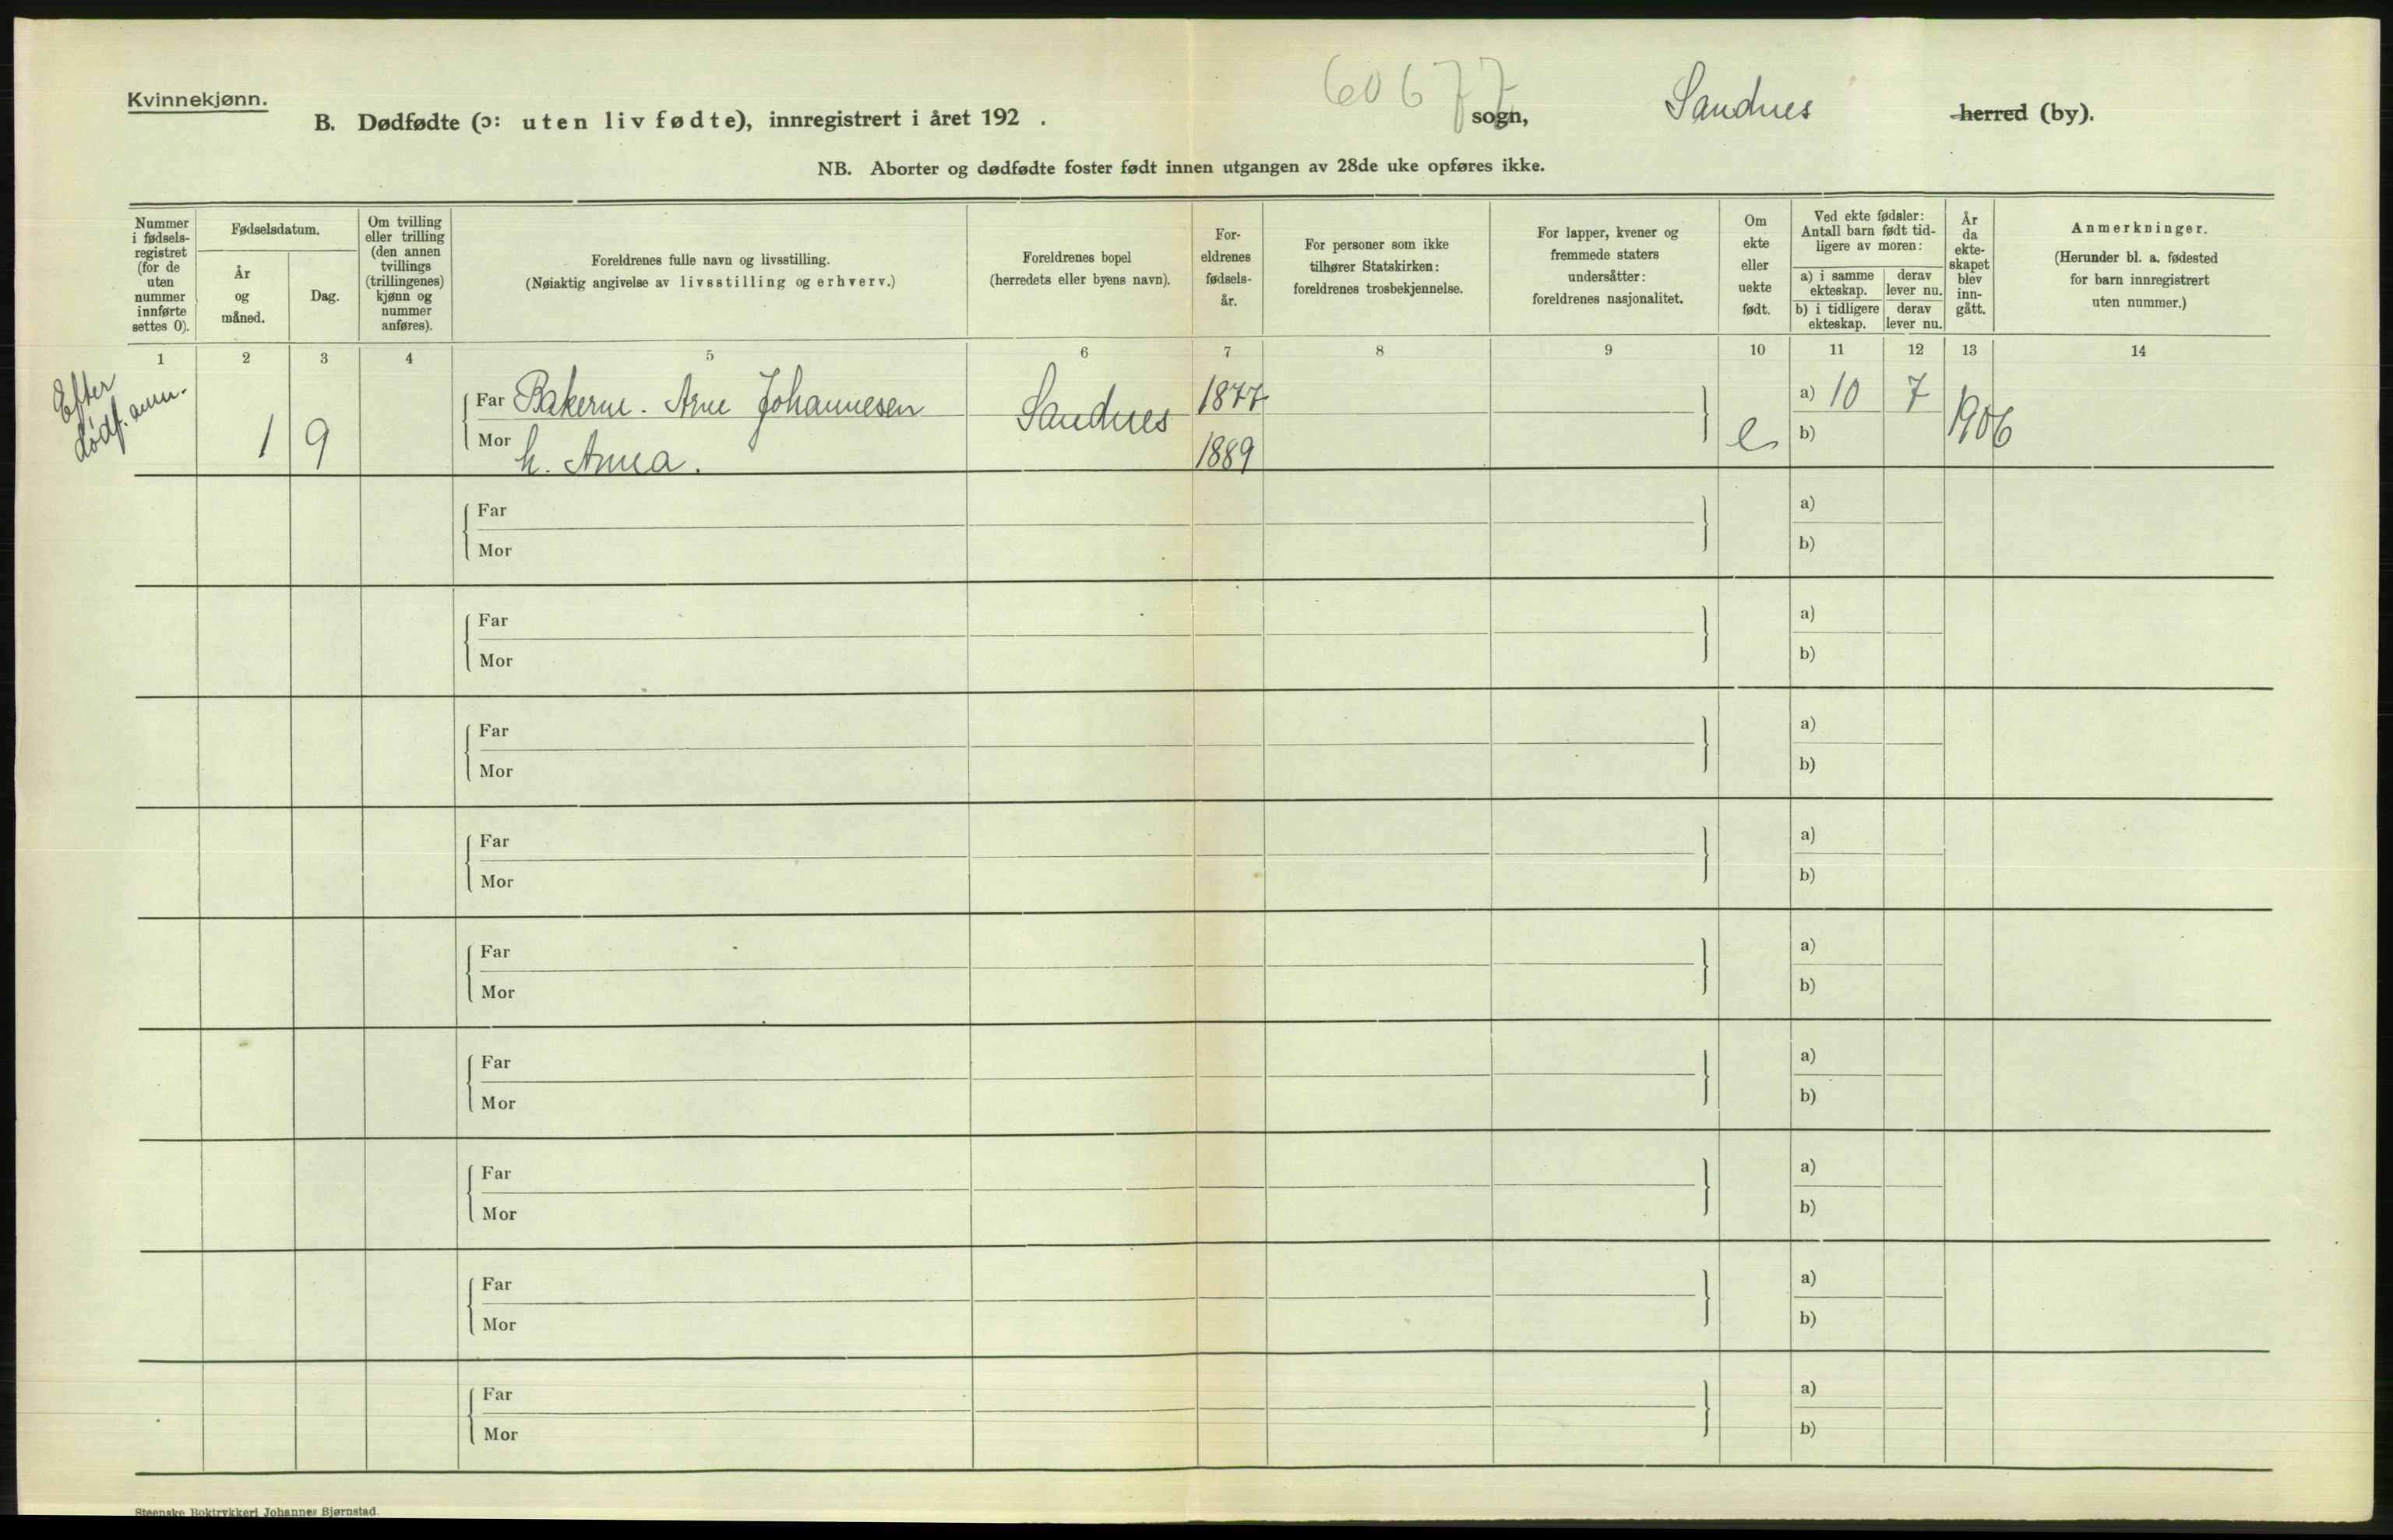 Kvinnekjønn.
60677
B. Dødfødte (ɔ: uten liv fødte), innregistrert i året 192 . sogn, Sandnes herred (by).
NB. Aborter og dødfødte foster født innen utgangen av 28de uke opføres ikke.
Nummer
i fødsels-
registret
(for de
uten
nummer
innførte
settes 0).
Fødselsdatum.
År
og
måned.
Dag.
Om tvilling
eller trilling
(den annen
tvillings
(trillingenes)
kjønn og
nummer
anføres).
Foreldrenes fulle navn og livsstilling.
(Nøiaktig angivelse av livsstilling og erhverv.)
Foreldrenes bopel
(herredets eller byens navn).
For-
eldrenes
fødsels-
år.
For personer som ikke
tilhører Statskirken:
foreldrenes trosbekjennelse.
For lapper, kvener og
fremmede staters
undersåtter:
foreldrenes nasjonalitet.
Om
ekte
eller
uekte
født.
Ved ekte fødsler:
Antall barn født tid-
ligere av moren:
a) i samme
ekteskap.
derav
lever nu.
b) i tidligere
ekteskap.
derav
lever nu.
År
da
ekte-
skapet
blev
inn-
gått.
Anmerkninger.
(Herunder bl. a. fødested
for barn innregistrert
uten nummer.)
1 2 3 4 5 6 7 8 9 10 11 12 13 14
Efter
dødf. anm.
1 9
Far Bakerm. Arne Johannesen Sandnes 1877 a) 10 7 1906
Mor h. Anna. 1889 e b)
Far a)
Mor b)
Far a)
Mor b)
Far a)
Mor b)
Far a)
Mor b)
Far a)
Mor b)
Far a)
Mor b)
Far a)
Mor b)
Far a)
Mor b)
Far a)
Mor b)
Steenske Boktrykkeri Johannes Bjørnstad.